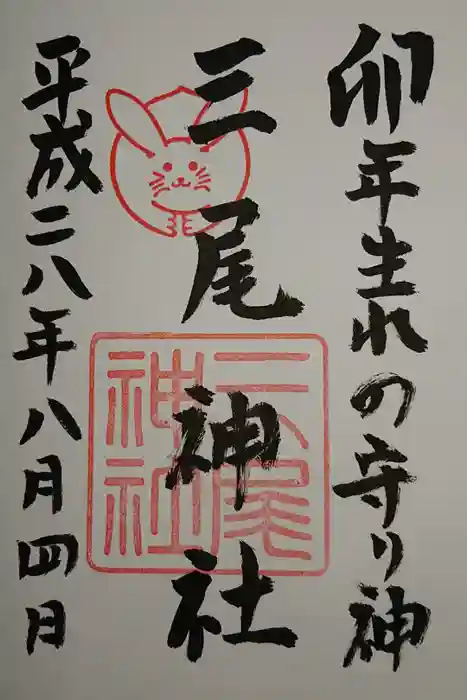 卯年生れの守り神
三尾神社
三尾神社
平成二八年八月四日